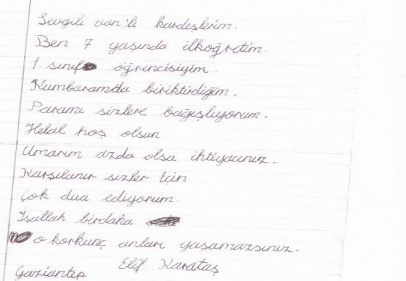 Sevgili van'lı kardeşlerim.
Ben 7 yaşında ilköğretim.
1 sınıf öğrencisiyim.
Kumbaramda biriktirdiğim.
Paramı sizlere bağışlıyorum.
Helal hoş olsun
Umarım azda olsa ihtiyacınız.
Karşılanır sizler için
Çok dua ediyorum.
İşallah birdaha
o korkunç anları yaşamazsınız.
Elif Karataş
Gaziantep